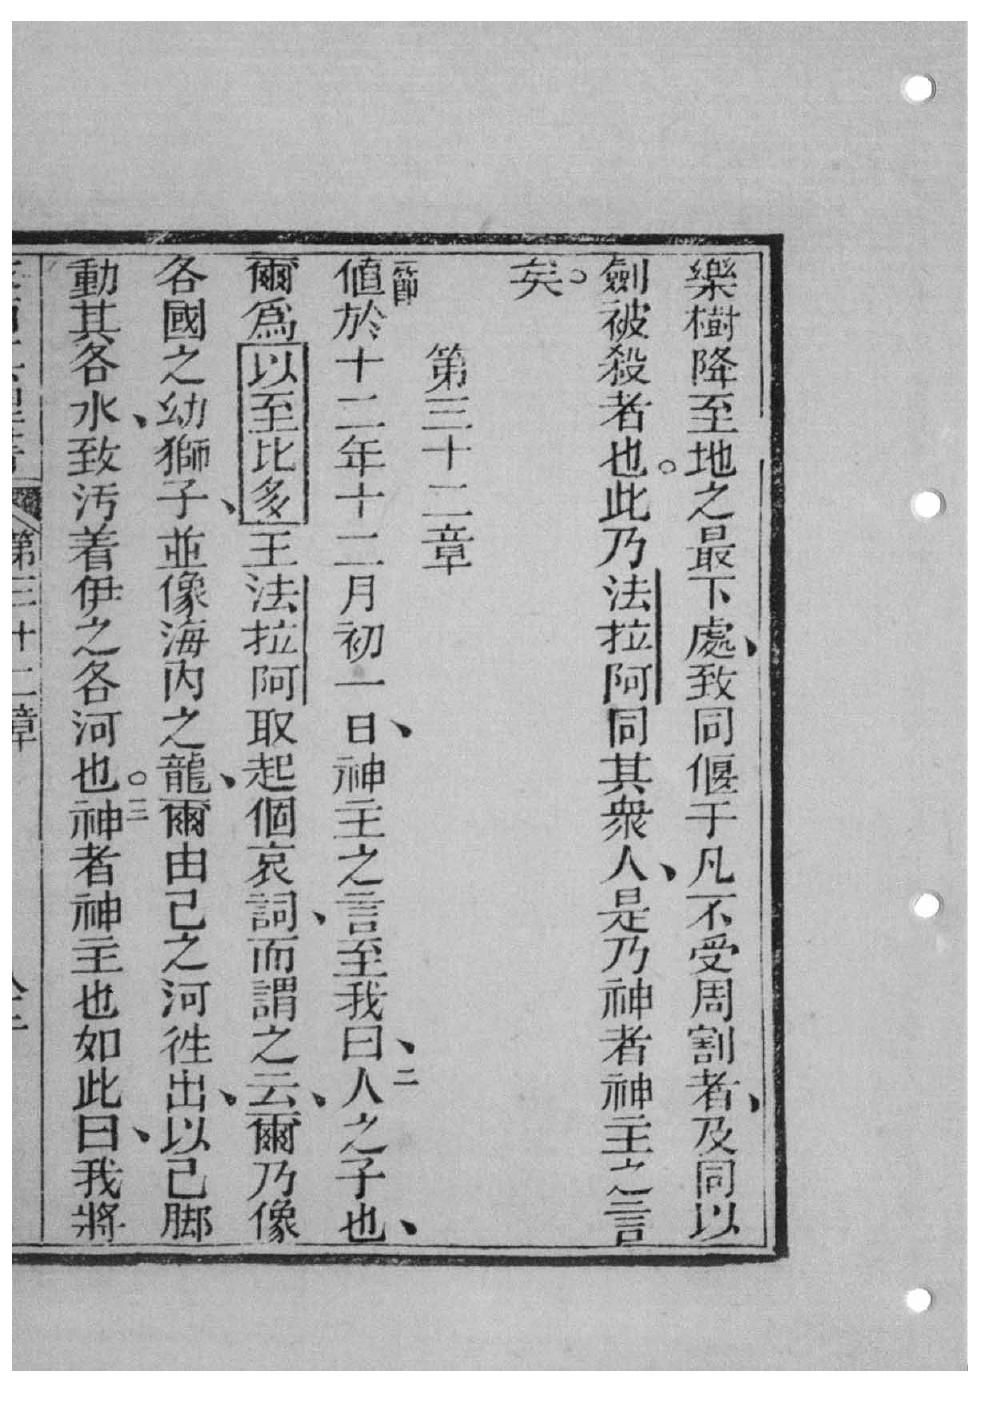 樂樹降至地之最下處、致同偃于凡不受周割者、及同以
劍被殺者也。此乃法拉阿同其衆人、是乃神者神主之言
矣。
第三十二章
一節值於十二年十二月初一日、神主之言至我曰、二人之子也、
爾爲以至比多王法拉阿取起個哀詞、而謂之云、爾乃像
各國之幼獅子、並像海內之龍、爾由己之河徃出、以己脚
動其各水、致汚着伊之各河也。三神者神主也如此曰、我將
第三十二章